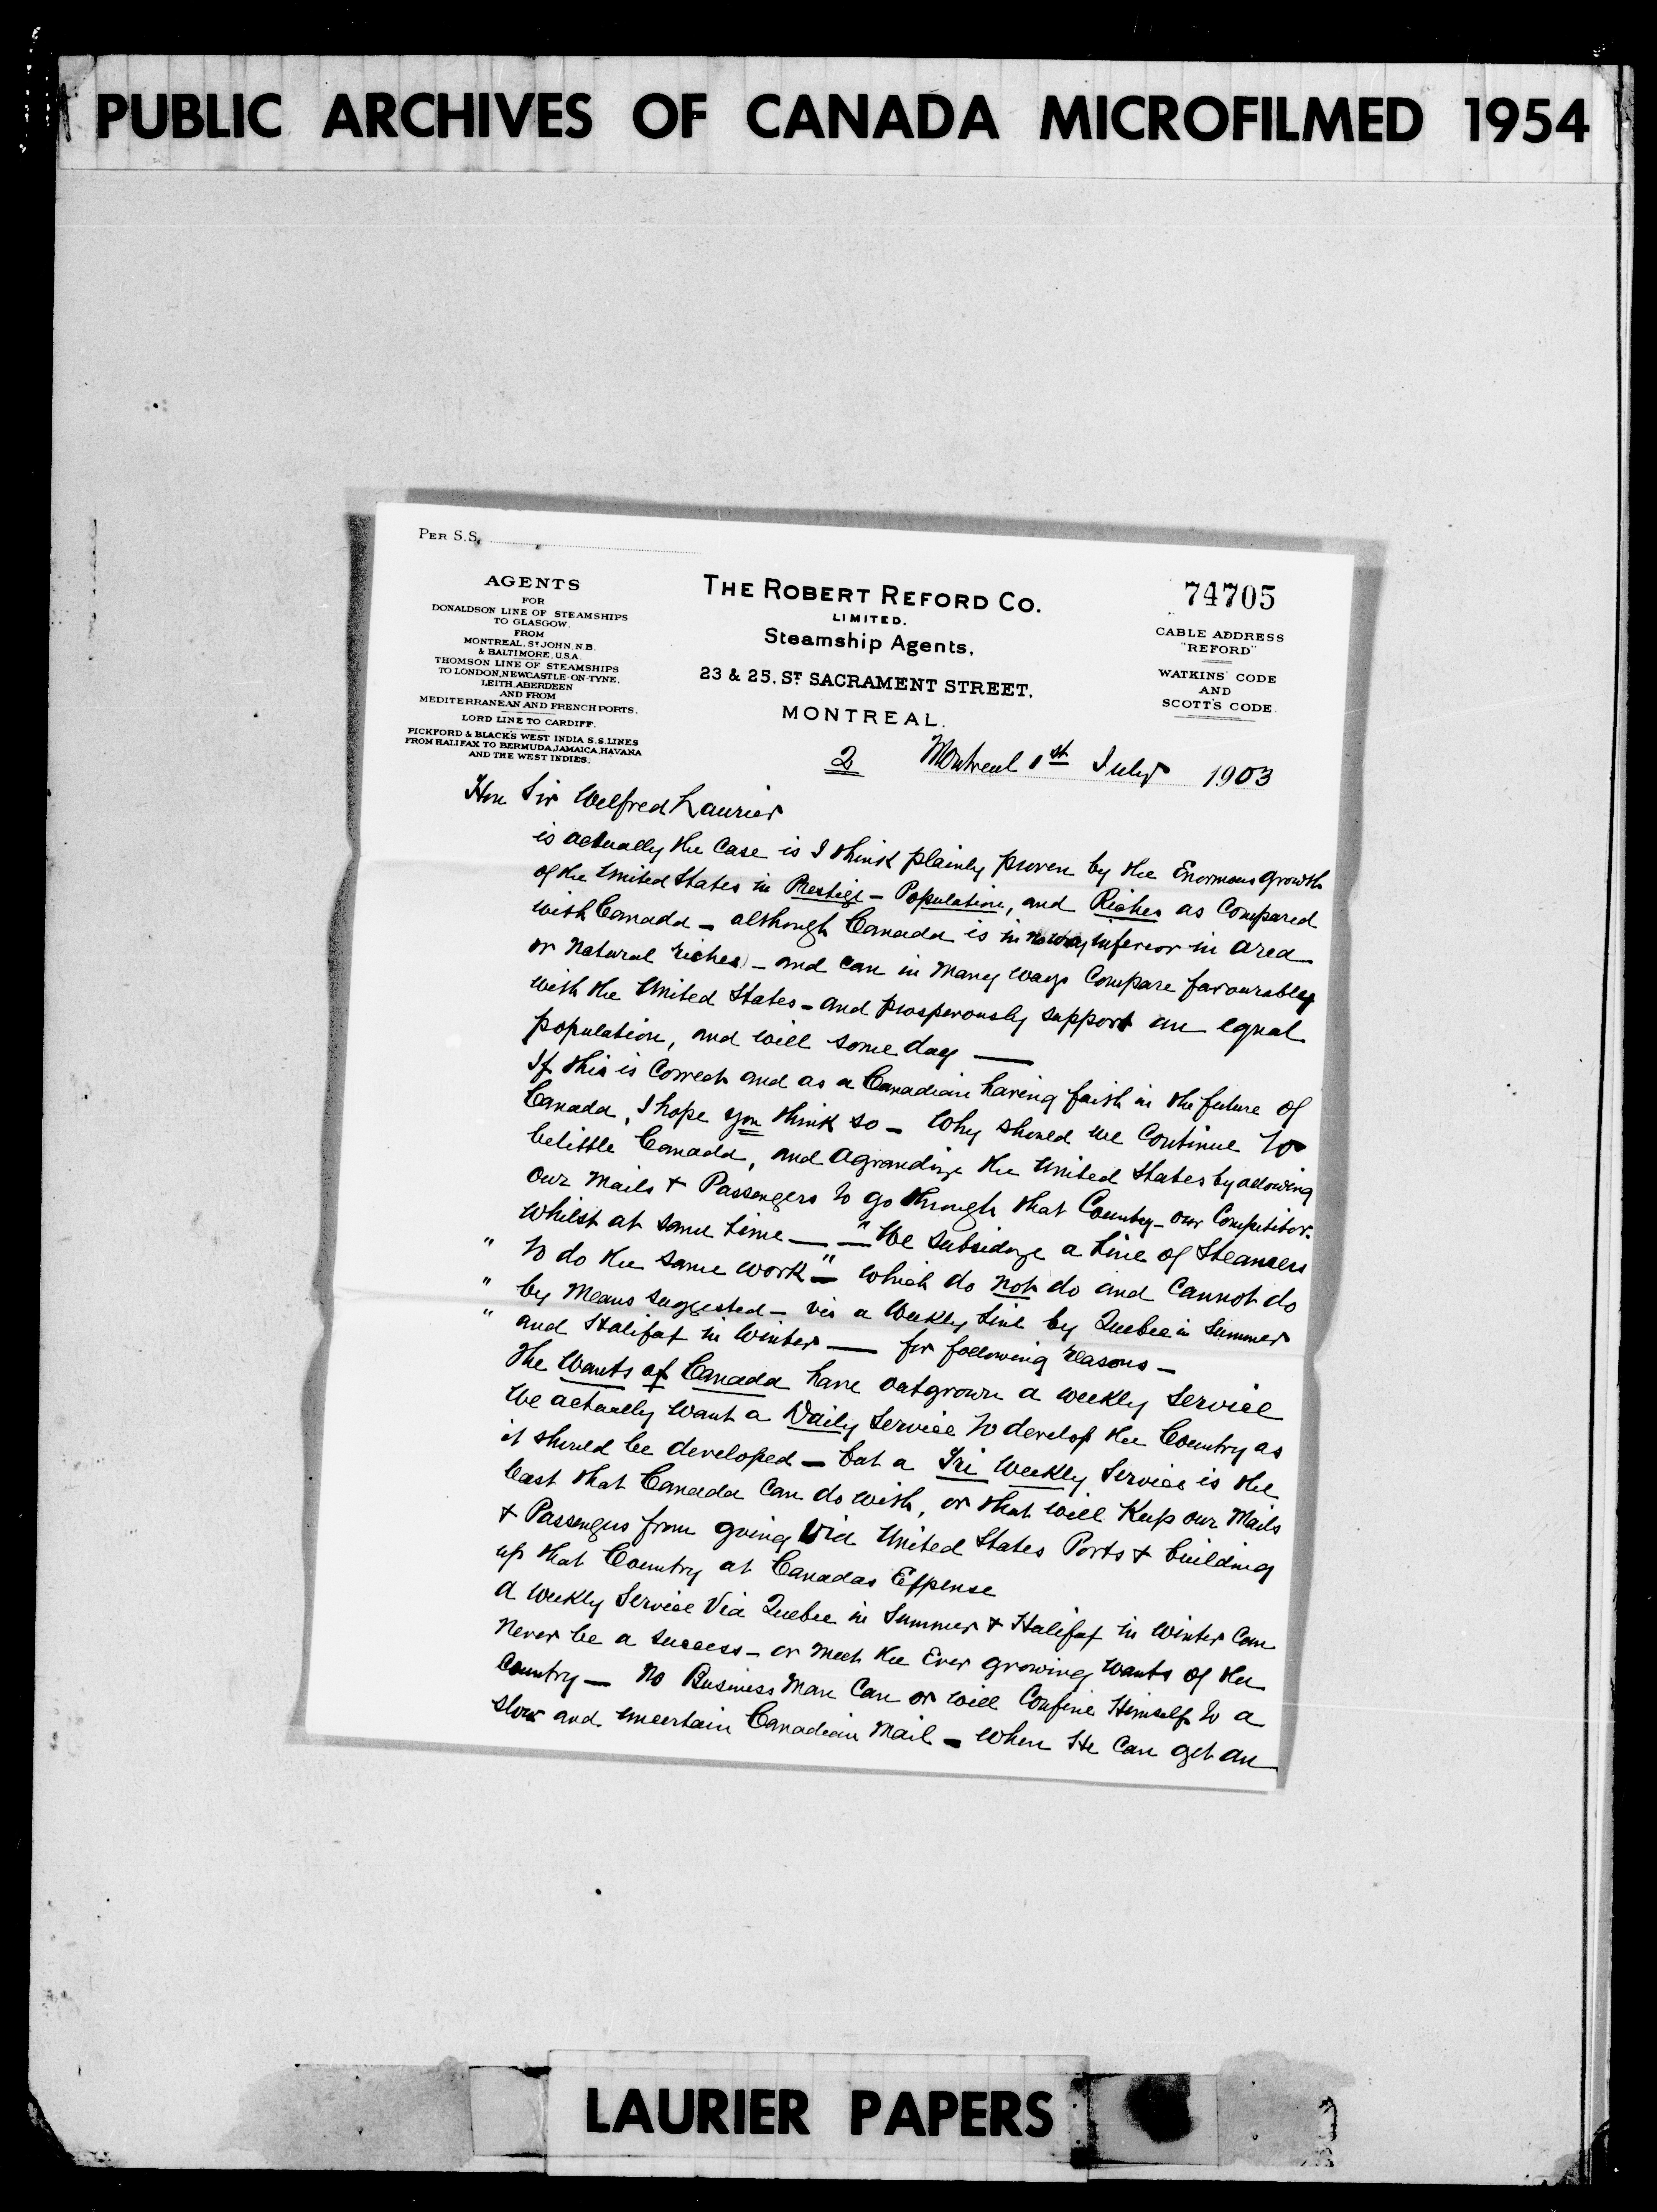 PUBLIC ARCHIVES OF CANADA MICROFILMED 1954
PER S.S.
AGENTS
FOR
DONALDSON LINE OF STEAMSHIPS
TO GLASGOW.
FROM
MONTREAL, ST JOHN, N.B.
& BALTIMORE, U.S.A.
THOMSON LINE OF STEAMSHIPS
TO LONDON, NEWCASTLE-ON-TYNE,
LEITH, ABERDEEN
AND FROM
MEDITERRANEAN AND FRENCH PORTS.
LORD LINE TO CARDIFF.
PICKFORD & BLACK'S WEST INDIA S.S. LINES
FROM HALIFAX TO BERMUDA, JAMAICA, HAVANA
AND THE WEST INDIES.
THE ROBERT REFORD CO.
LIMITED.
Steamship Agents,
23 & 25, ST SACRAMENT STREET,
MONTREAL.
74705
CABLE ADDRESS
"REFORD"
WATKINS' CODE
AND
SCOTT'S CODE.
2 Montreal 1st July 1903
Hon Sir Welfred Laurier
is actually the Case is I think plainly proven by the Enormous growth
of the United States in Prestige - Population, and Riches as Compared
with Canada - although Canada is in no way inferior in area
or Natural riches - and can in Many ways Compare favourably
with the United States - and prosperously support an Equal
population, and will some day —
If this is Correct and as a Canadian having faith in the future of
Canada, I hope you think so - Why should we Continue to
belittle Canada, and Agrandize the United States by allowing
our Mails & Passengers to go through that Country - our Competitor.
Whilst at same time — — "We Subsidize a Line of Steamers
" to do the same work" - which do not do and Cannot do
" by Means suggested - viz a Weekly Line by Quebec in Summer
" and Halifax in Winter — for following reasons -
The Wants of Canada have outgrown a weekly Service
We actually want a Daily Service to develop the Country as
it should be developed - but a Tri Weekly Service is the
least that Canada Can do with, or that will Keep our Mails
& Passengers from going Via United States Ports & building
up that Country at Canadas Expense
A Weekly Service Via Quebec in Summer & Halifax in Winter Can
Never be a success - or meet the Ever growing wants of the
Country - No Business Man Can or will Confine Himself to a
slow and uncertain Canadian Mail - When He Can get an
LAURIER PAPERS